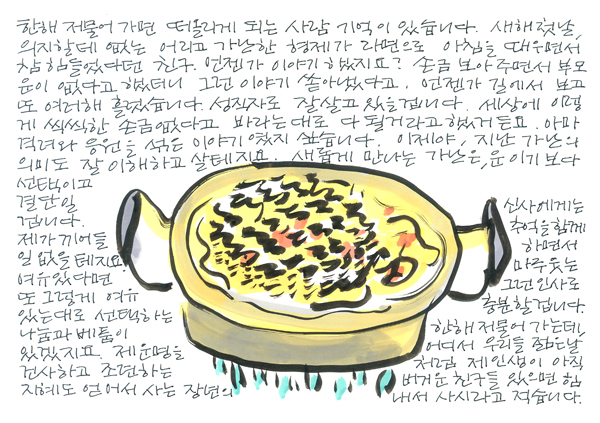 한해 저물어 가면 떠올리게 되는 사람 기억이 있습니다. 새해 첫날,
의지할데 없는 어리고 가난한 형제가 라면으로 아침을 때우면서
참 힘들었다던 친구. 언젠가 이야기 했지요? 손금 보아주면서 부모
운이 없다고 했더니 그런 이야기 쏟아냈다고. 언젠가 길에서 보고
또 여러해 흘렀습니다. 성직자로 잘 살고 있을겁니다. 세상에 이렇
게 씩씩한 손금 없다고 바라는대로 다 될거라고 했거든요. 아마
격려와 응원을 섞은 이야기 였지 싶습니다. 이제야, 지난 가난의
의미도 잘 이해하고 살테지요. 새롭게 만나는 가난은, 운이기 보다
선택이고
결단일
겁니다.
제가 끼어들
일 없을테지요.
여유 있다면
또 그렇게 여유
있는대로 선택하는
나눔과 베풂이
있겠지요. 제 운명을
건사하고 조련하는
지혜도 얻어서 사는 장년의
신사에게는
추억을 함께
하면서
마주 웃는
그런 인사로
충분할겁니다.
한해 저물어 가는데,
어려서 우리들 젊은날
처럼 제 인생이 아직
버거운 친구들 있으면 힘
내서 사시라고 적습니다.